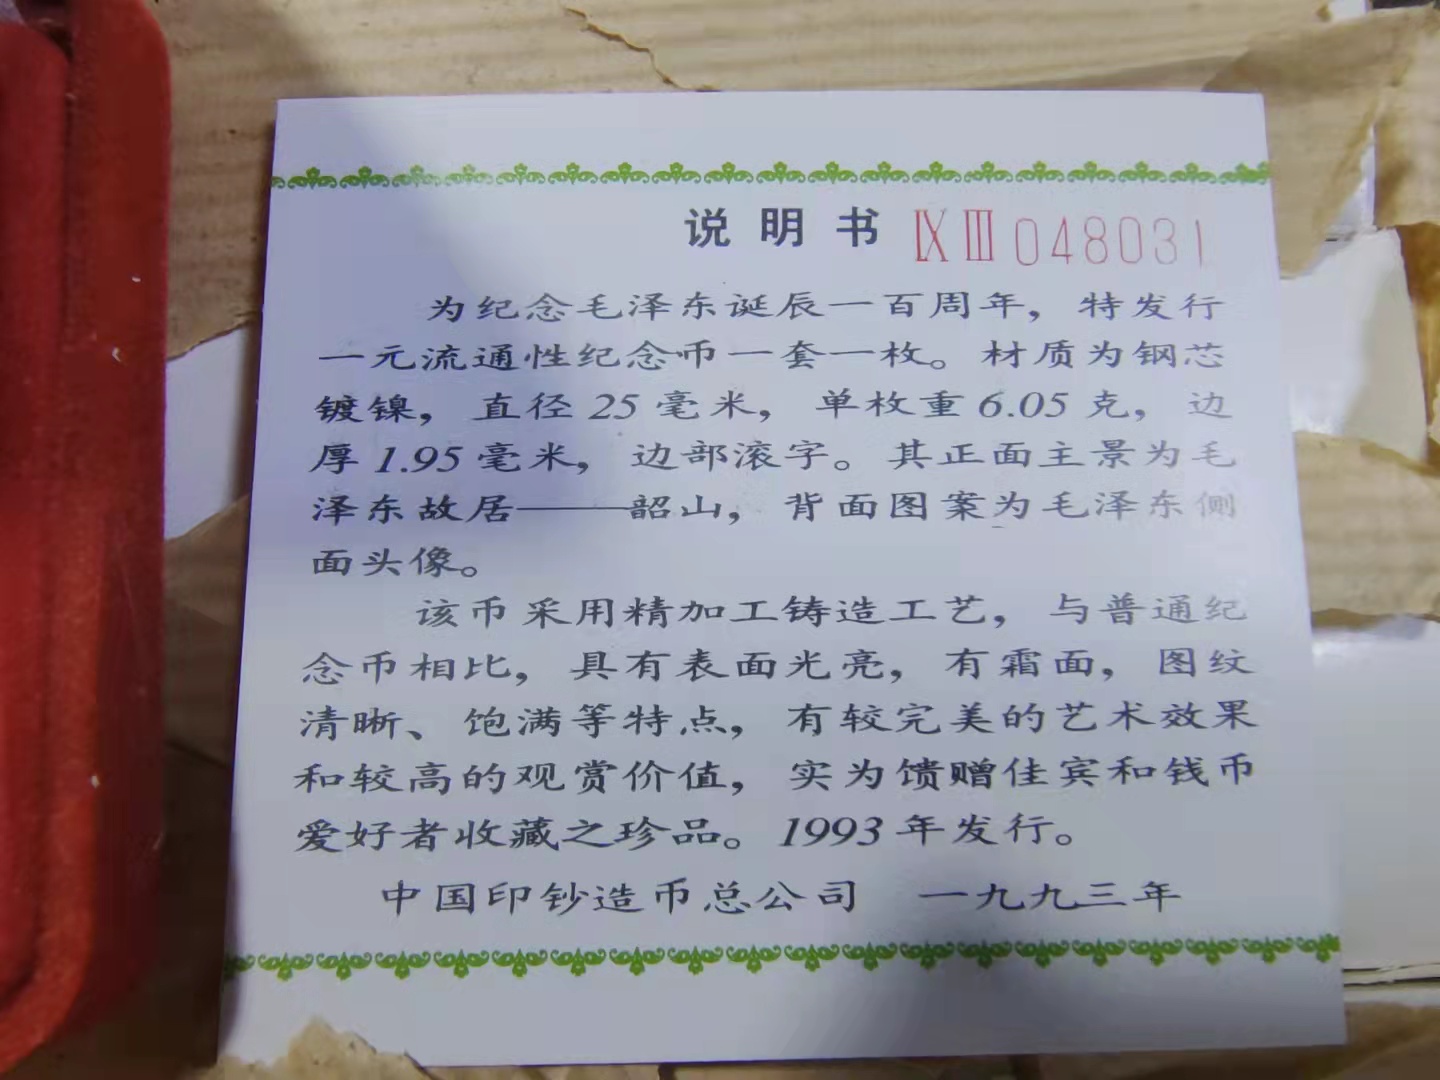 说明书 ⅨⅢ048031
为纪念毛泽东诞辰一百周年，特发行
一元流通性纪念币一套一枚。材质为钢芯
镀镍，直径25毫米，单枚重6.05克，边
厚1.95毫米，边部滚字。其正面主景为毛
泽东故居——韶山，背面图案为毛泽东侧
面头像。
该币采用精加工铸造工艺，与普通纪
念币相比，具有表面光亮，有霜面，图纹
清晰、饱满等特点，有较完美的艺术效果
和较高的观赏价值，实为馈赠佳宾和钱币
爱好者收藏之珍品。1993年发行。
中国印钞造币总公司 一九九三年